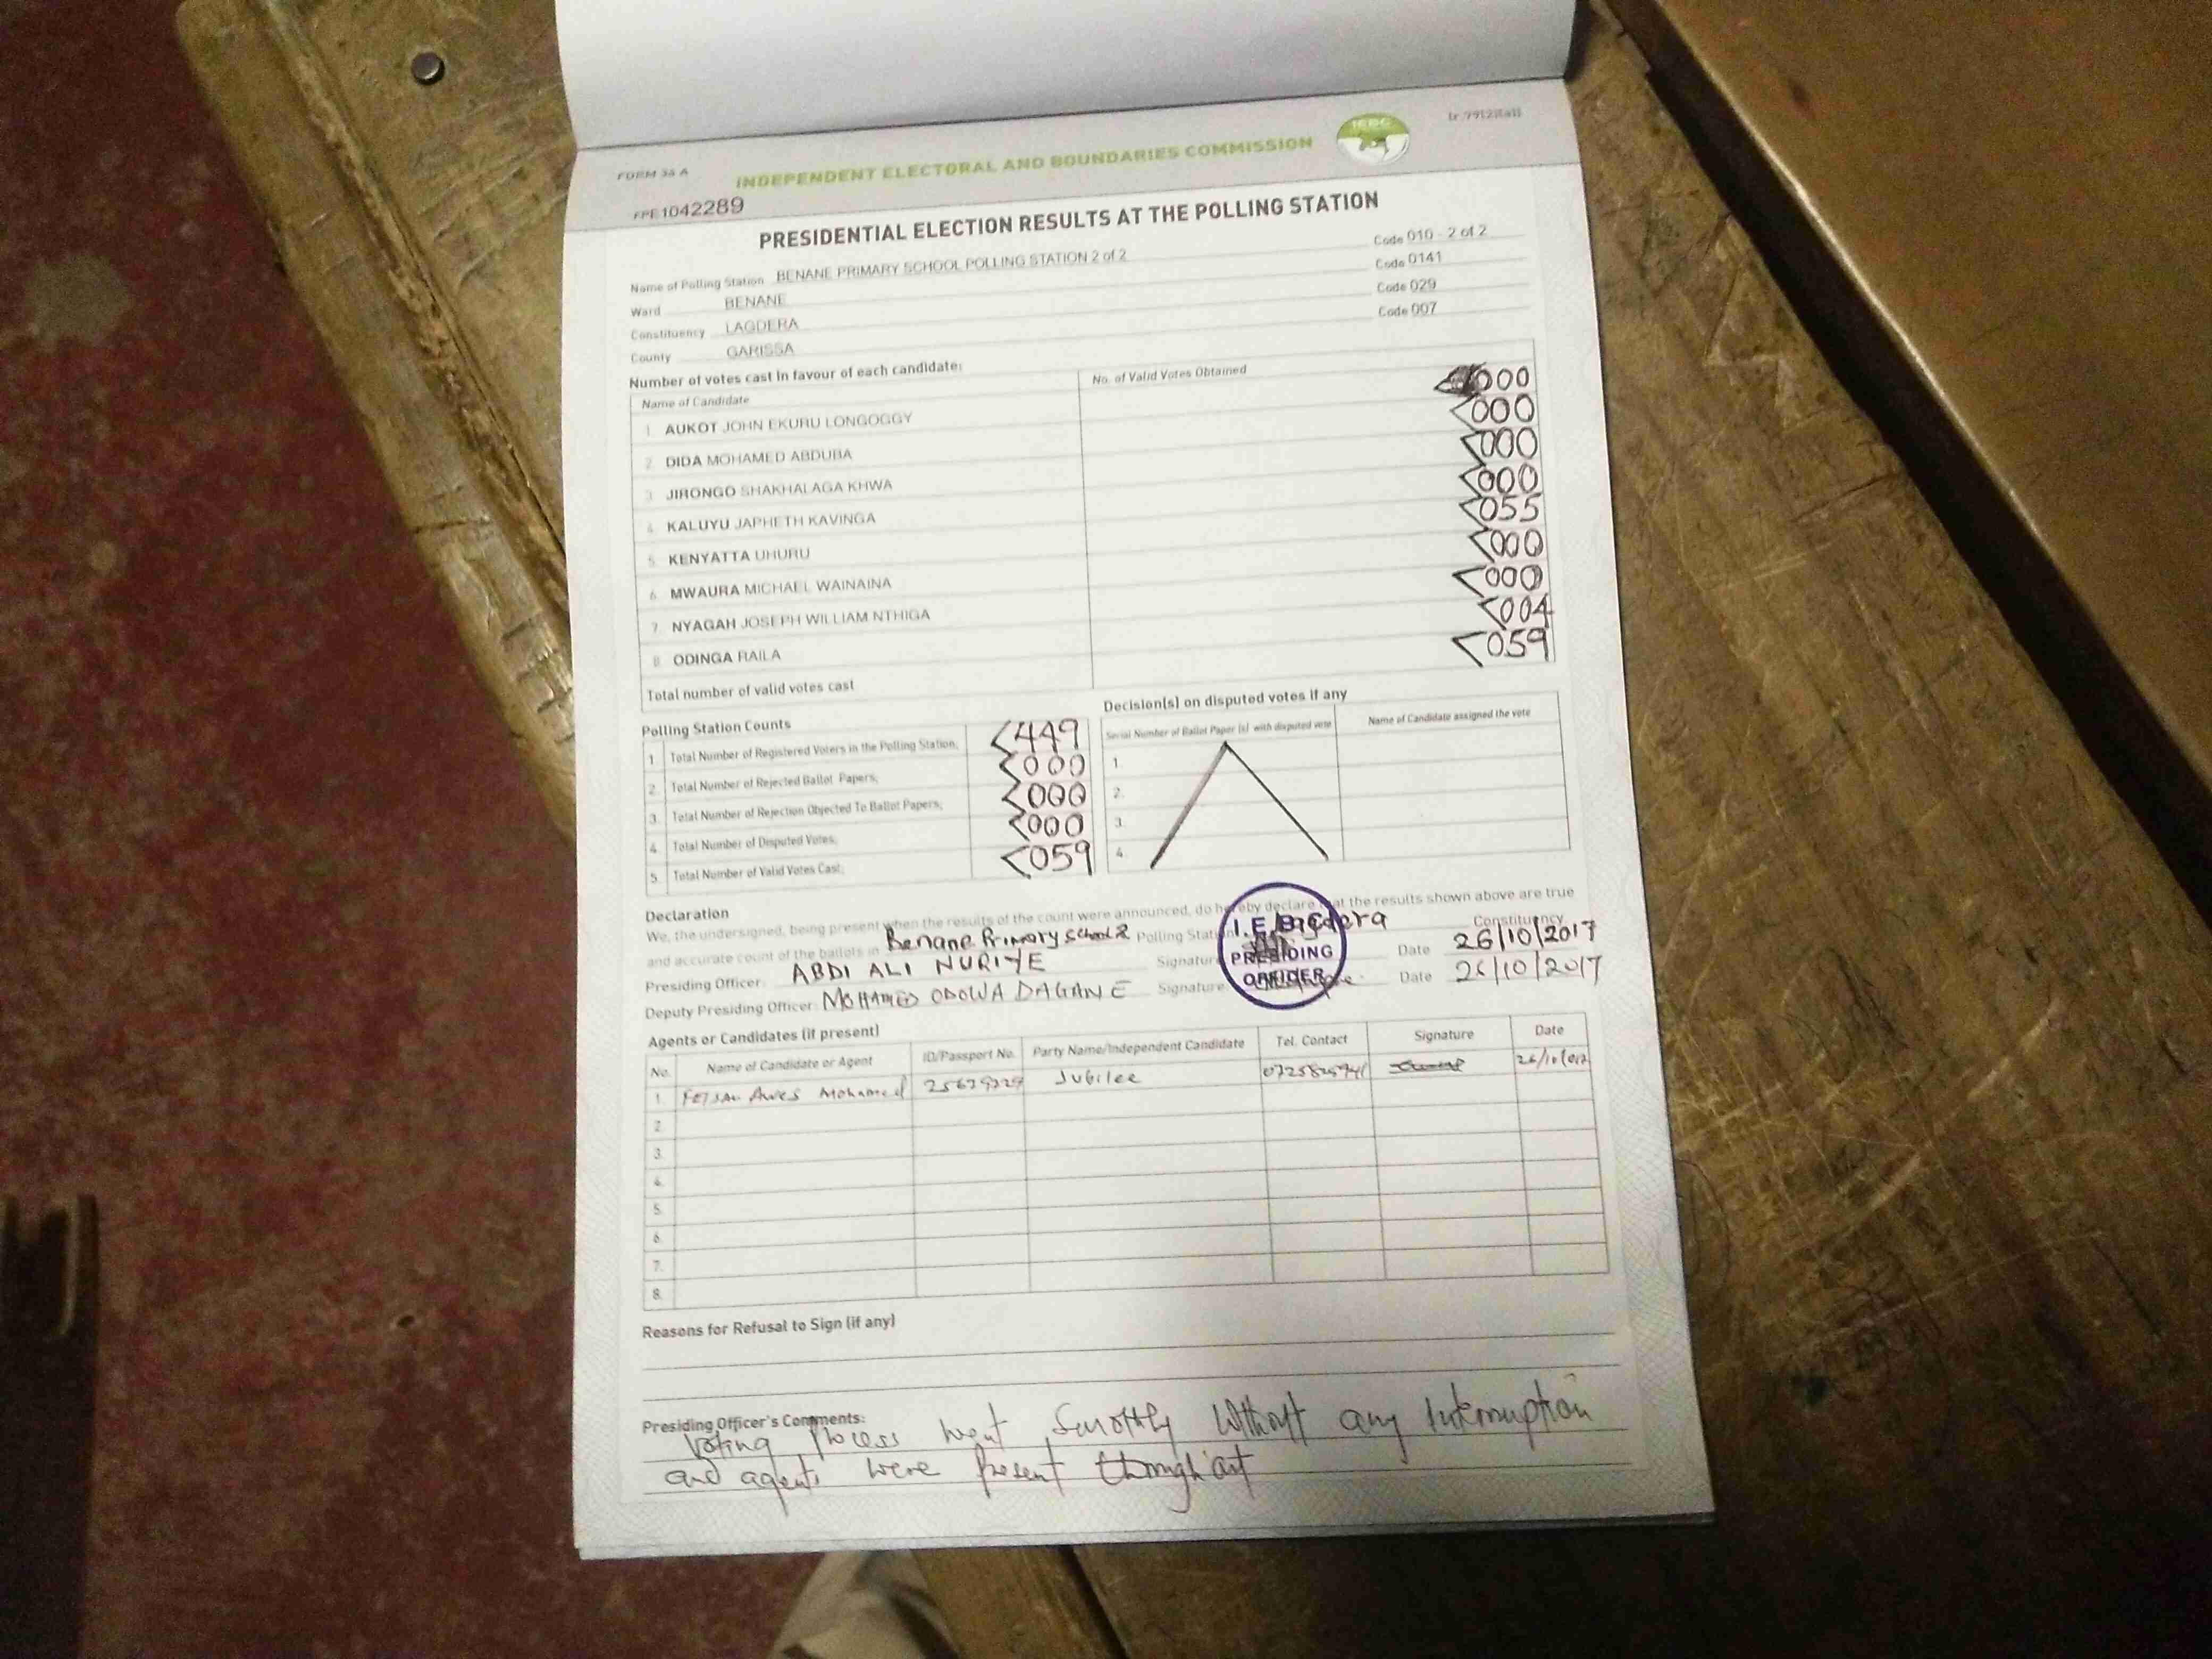 FORM 34 A
INDEPENDENT ELECTORAL AND BOUNDARIES COMMISSION
IEBC
FPE 1042289
PRESIDENTIAL ELECTION RESULTS AT THE POLLING STATION
Name of Polling Station BENANE PRIMARY SCHOOL POLLING STATION 2 of 2 Code 010 - 2 of 2
Ward BENANE Code 0141
Constituency LAGDERA Code 029
County GARISSA Code 007
Number of votes cast in favour of each candidate:
Name of Candidate No. of Valid Votes Obtained
1. AUKOT JOHN EKURU LONGOGGY 000
2. DIDA MOHAMED ABDUBA <000
3. JIRONGO SHAKHALAGA KHWA <000
4. KALUYU JAPHETH KAVINGA <000
5. KENYATTA UHURU <055
6. MWAURA MICHAEL WAINAINA <000
7. NYAGAH JOSEPH WILLIAM NTHIGA <000
8. ODINGA RAILA <004
Total number of valid votes cast <059
Polling Station Counts
1. Total Number of Registered Voters in the Polling Station; <449
2. Total Number of Rejected Ballot Papers; <000
3. Total Number of Rejection Objected To Ballot Papers; <000
4. Total Number of Disputed Votes; <000
5. Total Number of Valid Votes Cast; <059
Decision(s) on disputed votes if any
Serial Number of Ballot Paper (s) with disputed vote Name of Candidate assigned the vote
1.
2.
3.
4.
Declaration
We, the undersigned, being present when the results of the count were announced, do hereby declare that the results shown above are true
and accurate count of the ballots in Benane Primary School 2 Polling Station Lagdera Constituency
Presiding Officer: ABDI ALI NURIYE Signature Date 26/10/2017
Deputy Presiding Officer: MOHAMED ODOWA DAGANE Signature Date 26/10/2017
I.E.B.C
PRESIDING
OFFICER
Agents or Candidates (if present)
No. Name of Candidate or Agent ID/Passport No. Party Name/Independent Candidate Tel. Contact Signature Date
1. Mohamed Jubilee
2.
3.
4.
5.
6.
7.
8.
Reasons for Refusal to Sign (if any)
Presiding Officer's Comments:
Voting Process went Smothly Without any Interruption
and agents were Present through'out